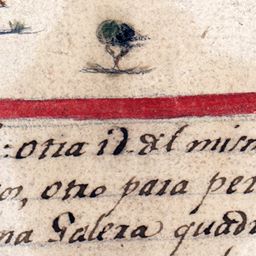 : otra id. dl mism
os, otro para per
na Galera quadr